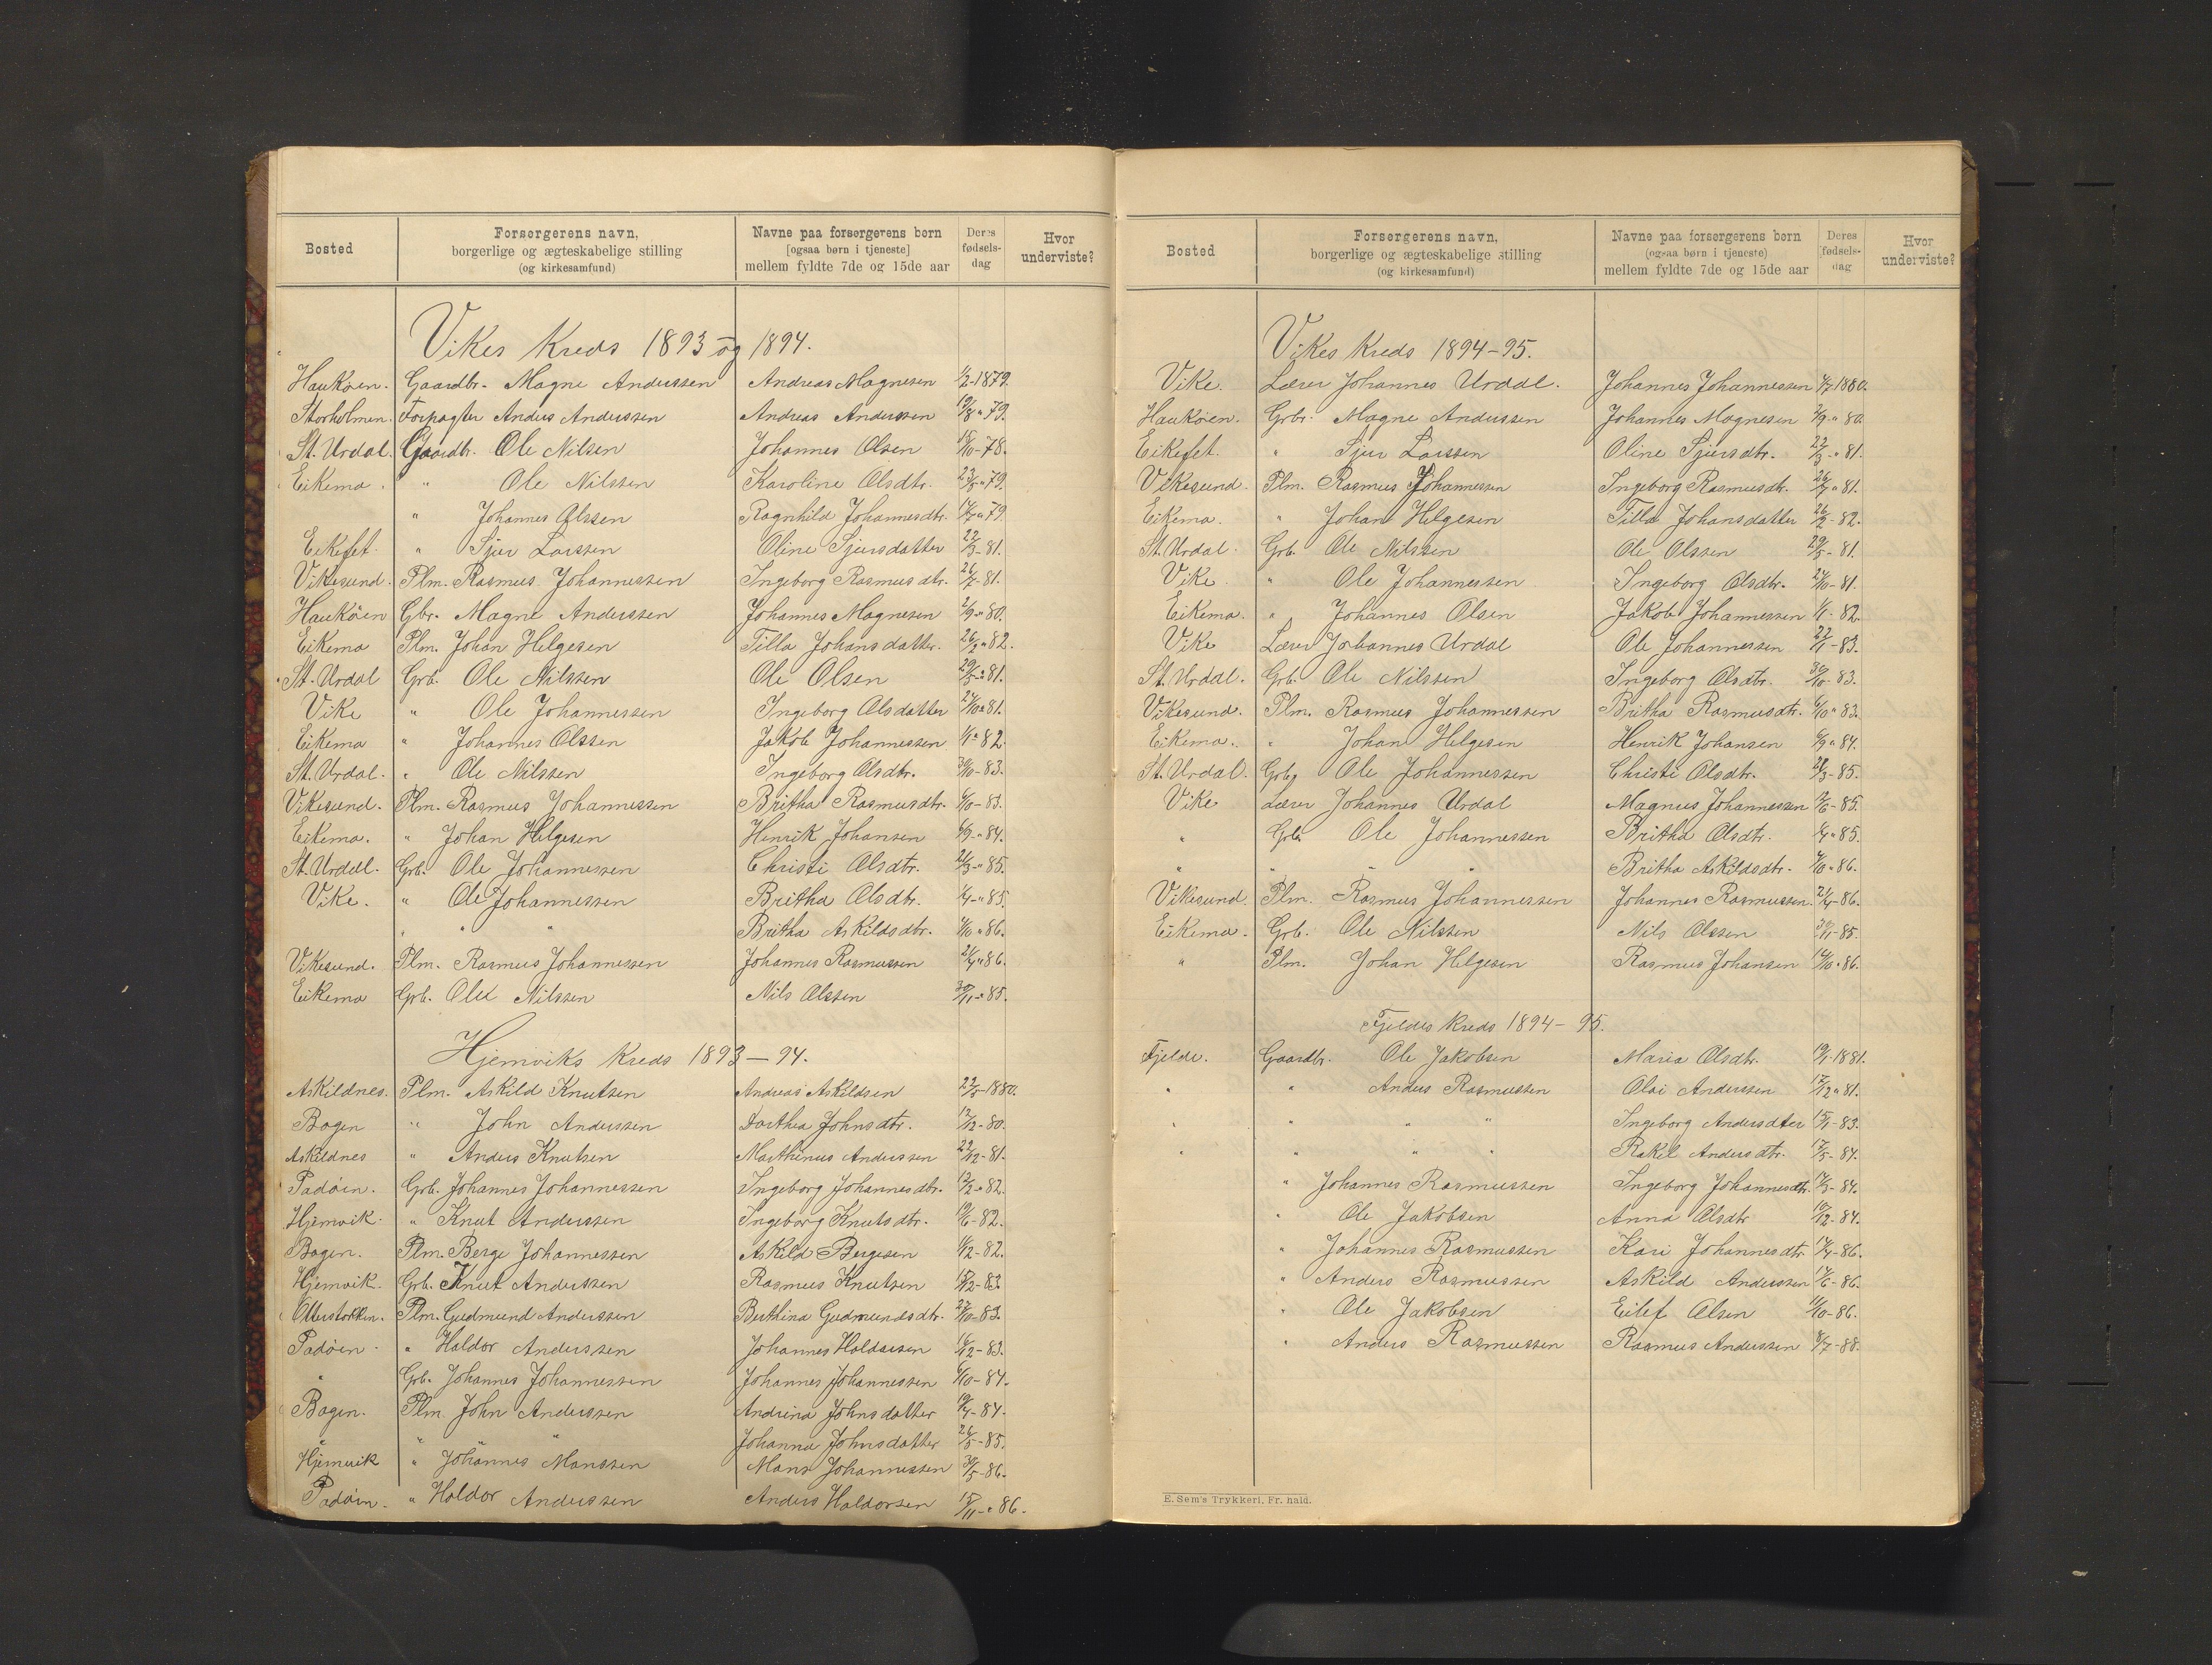 Bosted | Forsørgerens navn, borgerlige og ægteskabelige stilling (og kirkesamfund) | Navne paa forsørgerens børn [ogsaa børn i tjeneste] mellem fyldte 7de og 15de aar | Deres fødsels-dag | Hvor underviste?
Vikes Kreds 1893 og 1894.
Haukøen. Gaardbr. Magne Anderssen Andreas Magnesen 1/2-1879.
Storholmen. Forpagter Anders Anderssen Andreas Anderssen 19/8 " 79.
St. Urdal. Gaardbr. Ole Nilsen Johannes Olsen /10-78.
Eikemo. " Ole Nilssen Karoline Olsdtr. 23/5 " 79.
" Johannes Olssen Ragnhild Johannesdtr. " 79
Eikefet. " Sjur Larssen Oline Sjursdatter 22/3-81.
Vikesund. Plm. Rasmus Johannessen Ingeborg Rasmusdtr. 26/7-81.
Haukøen Gbr. Magne Anderssen Johannes Magnesen 2/9 " 80.
Eikemo Plm. Johan Helgesen Tilla Johansdatter. 26/2 " 82.
St. Urdal Grb. Ole Nilssen Ole Olsen 29/5-81.
Vike " Ole Johannessen Ingeborg Olsdatter 24/10 " 81.
Eikemo " Johannes Olssen Jakob Johannessen 1/1 " 82.
St. Urdal. " Ole Nilssen Ingeborg Olsdtr. 30/10-83.
Vikesund. Plm. Rasmus Johannessen Britha Rasmusdtr. 6/10-83.
Eikemo. " Johan Helgesen Henrik Johansen 6/9 " 84.
St. Urdal. Grb. Ole Johannessen Christi Olsdtr. 21/3-85.
Vike. " Ole Johannessen Britha Olsdtr. 1/4-" 85.
" " " Britha Askildsdtr. 4/10 " 86.
Vikesund. Plm. Rasmus Johannessen Johannes Rasmussen 21/4 " 86.
Eikemo Grb. Ole Nilssen Nils Olssen 30/11-85.
Hjemviks Kreds 1893-94.
Askildnes. Plm. Askild Knutsen Andreas Askildsen 22/5-1880.
Bogen " John Anderssen Dorthea Johnsdtr. 12/12-80.
Askildnes " Anders Knutsen Marthinus Anderssen 22/12-81.
Padøen. Grb. Johannes Johannessen Ingeborg Johannesdtr. 12/2-82.
Hjemvik. " Knut Anderssen Ingeborg Knutsdtr. 19/6-82.
Bogen. Plm. Berge Johannessen Askild Bergesen 1/12-82.
Hjemvik. Grb. Knut Anderssen Rasmus Knutsen 15/12-83
Otterstokken. Plm. Gudmund Anderssen Berthina Gudmundsdtr. /10-83.
Padøen. " Haldor Anderssen Johannes Haldorsen 16/12-83.
" Grb. Johannes Johannessen Johannes Johannessen 6/10-84.
Bogen. Plm. John Anderssen Andrina Johnsdatter 19/4-84.
" " " Johanna Johnsdatter 26/5-85.
Hjemvik " Johannes Monssen Mons Johannessen 30/5-86.
Padøen. " Haldor Anderssen Anders Haldorsen 15/11-" 86.
Bosted | Forsørgerens navn, borgerlige og ægteskabelige stilling (og kirkesamfund) | Navne paa forsørgerens børn (ogsaa børn i tjeneste) mellem fyldte 7de og 15de aar | Deres fødsels-dag | Hvor underviste?
Vikes Kreds 1894-95.
Vike. Lærer Johannes Urdal. Johannes Johannessen /7 1880.
Haukøen. Grbr. Magne Anderssen Johannes Magnesen 2/9 " 80.
Eikefet. " Sjur Larssen Oline Sjursdtr. 22/3-" 81.
Vikesund. Plm. Rasmus Johannessen Ingeborg Rasmusdtr. 26/7 " 81.
Eikemo. " Johan Helgesen Tilla Johansdatter 26/2-82.
St. Urdal. Grb. Ole Nilssen Ole Olssen 29/5-81.
Vike. " Ole Johannessen Ingeborg Olsdtr. 24/10-81.
Eikemo. " Johannes Olsen Jakob Johannessen 1/1-82.
Vike Lærer Johannes Urdal Ole Johannessen 22/1-83.
St. Urdal. Grb. Ole Nilssen Ingeborg Olsdtr. 30/10-83.
Vikesund. Plm. Rasmus Johannessen Britha Rasmusdtr. 6/10 " 83.
Eikemo. " Johan Helgesen Henrik Johansen 6/9 " 84.
St. Urdal. Grb. Ole Johannessen Christi Olsdtr. 21/3-85.
Vike Lærer Johannes Urdal Magnus Johannessen /6-85.
" Grb Ole Johannessen Britha Olsdtr. 1/4 " 85.
" " " " Britha Askildsdtr. 4/10 " 86.
Vikesund. Plm. Rasmus Johannessen Johannes Rasmussen. 21/4-86.
Eikemo. Grb. Ole Nilssen Nils Olssen 30/11-85.
" Plm. Johan Helgesen Rasmus Johansen 14/10 " 86.
Fjeldes Kreds 1894-95.
Fjelde. Gaardbr. Ole Jakobsen Maria Olsdtr. 19/1-1881.
" " Anders Rasmussen Olai Anderssen 17/12 " 81.
" " " " Ingeborg Andersdter 15/1-83.
" " " " Rakel Andersdtr. 17/5-84.
" Johannes Rasmussen Ingeborg Johannesdtr. 14/3-84.
" Ole Jakobsen Anna Olsdtr 10/12-84.
" Johannes Rasmussen Kari Johannesdtr 14/4-86.
" Anders Rasmussen Askild Anderssen 14/6-86.
" Ole Jakobsen Eilef Olsen 11/10-86.
" Anders Rasmussen Rasmus Anderssen 8/7-88.
E. Sem's Trykkeri, Fr. hald.